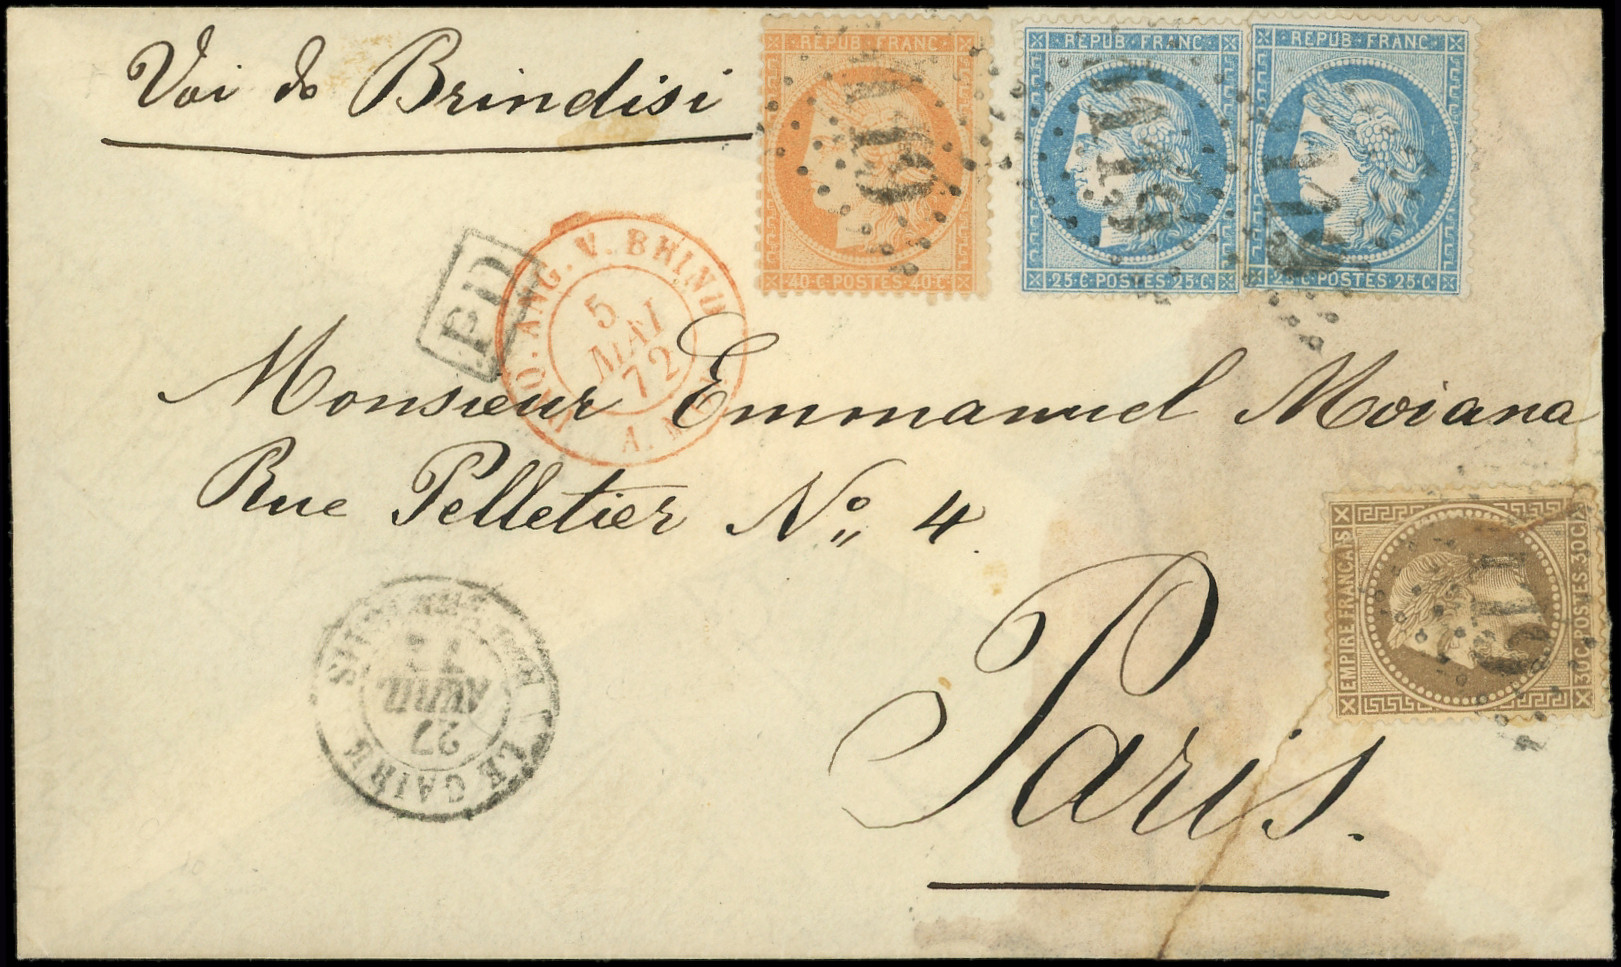 Voi de Brindisi
REPUB·FRANC
40·C·POSTES·40·C
REPUB·FRANC
25·C·POSTES·25·C
REPUB·FRANC
25·C·POSTES·25·C
PD
ANG. V. BRIND
5
MAI
72
Monsieur Emmanuel Moiana
Rue Pelletier No„ 4.
EMPIRE FRANCAIS
30C·POSTES·30C
5119
5119
5119
5119
LE CAIRE
27
AVRIL
72
Paris.